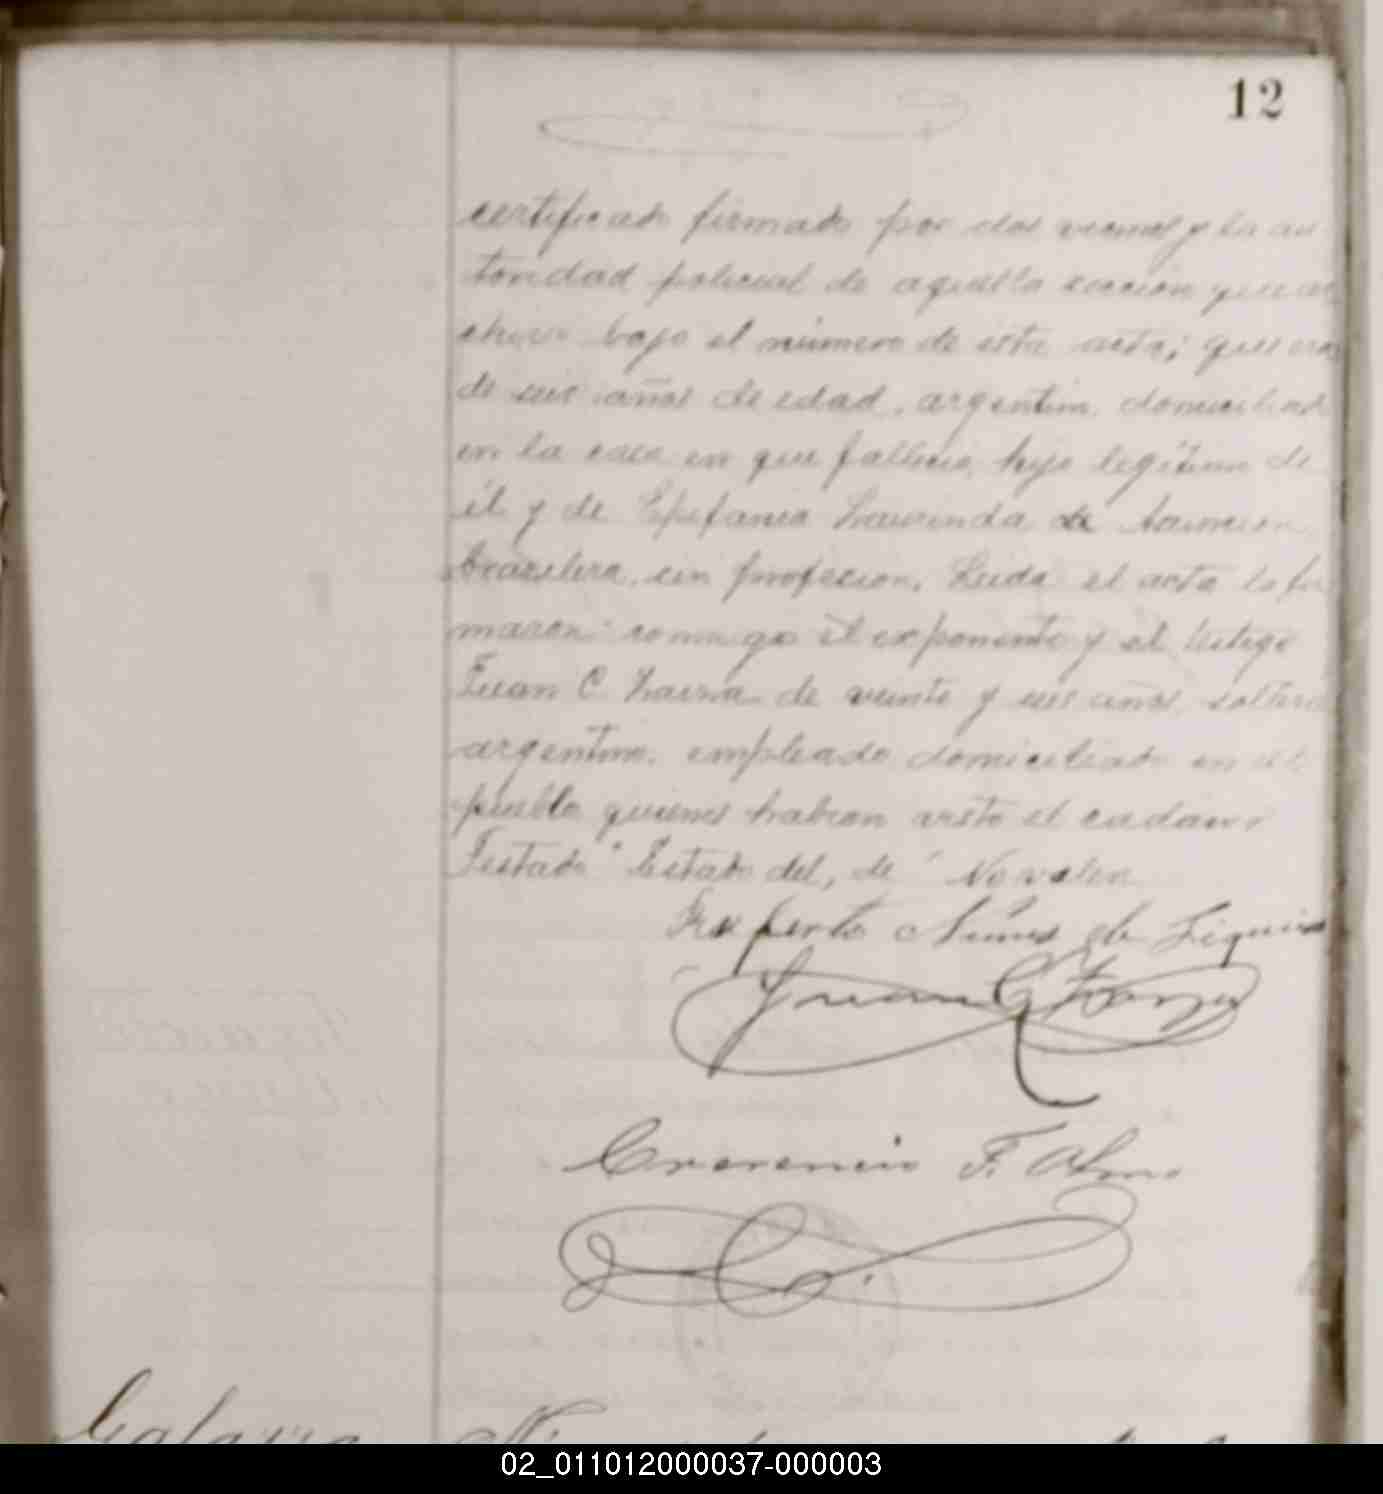 12
certificado firmado por dos vecinos y la au
toridad policial de aquella seccion que ar
chivo bajo el número de esta acta; que era
de seis años de edad, argentino, domiciliado
en la casa en que falleció, hijo legítimo de
él y de Epifania de
brasilera, sin profesion. Leida el acta la fir
maron conmigo el exponente y el testigo
Juan C. de veinte y seis años, soltero
argentino, empleado domiciliado en el
pueblo quienes habian visto el cadaver
Testado "Estado del, de" No valen
Nunes de
Juan C
Cresencio F.
02_011012000037-000003